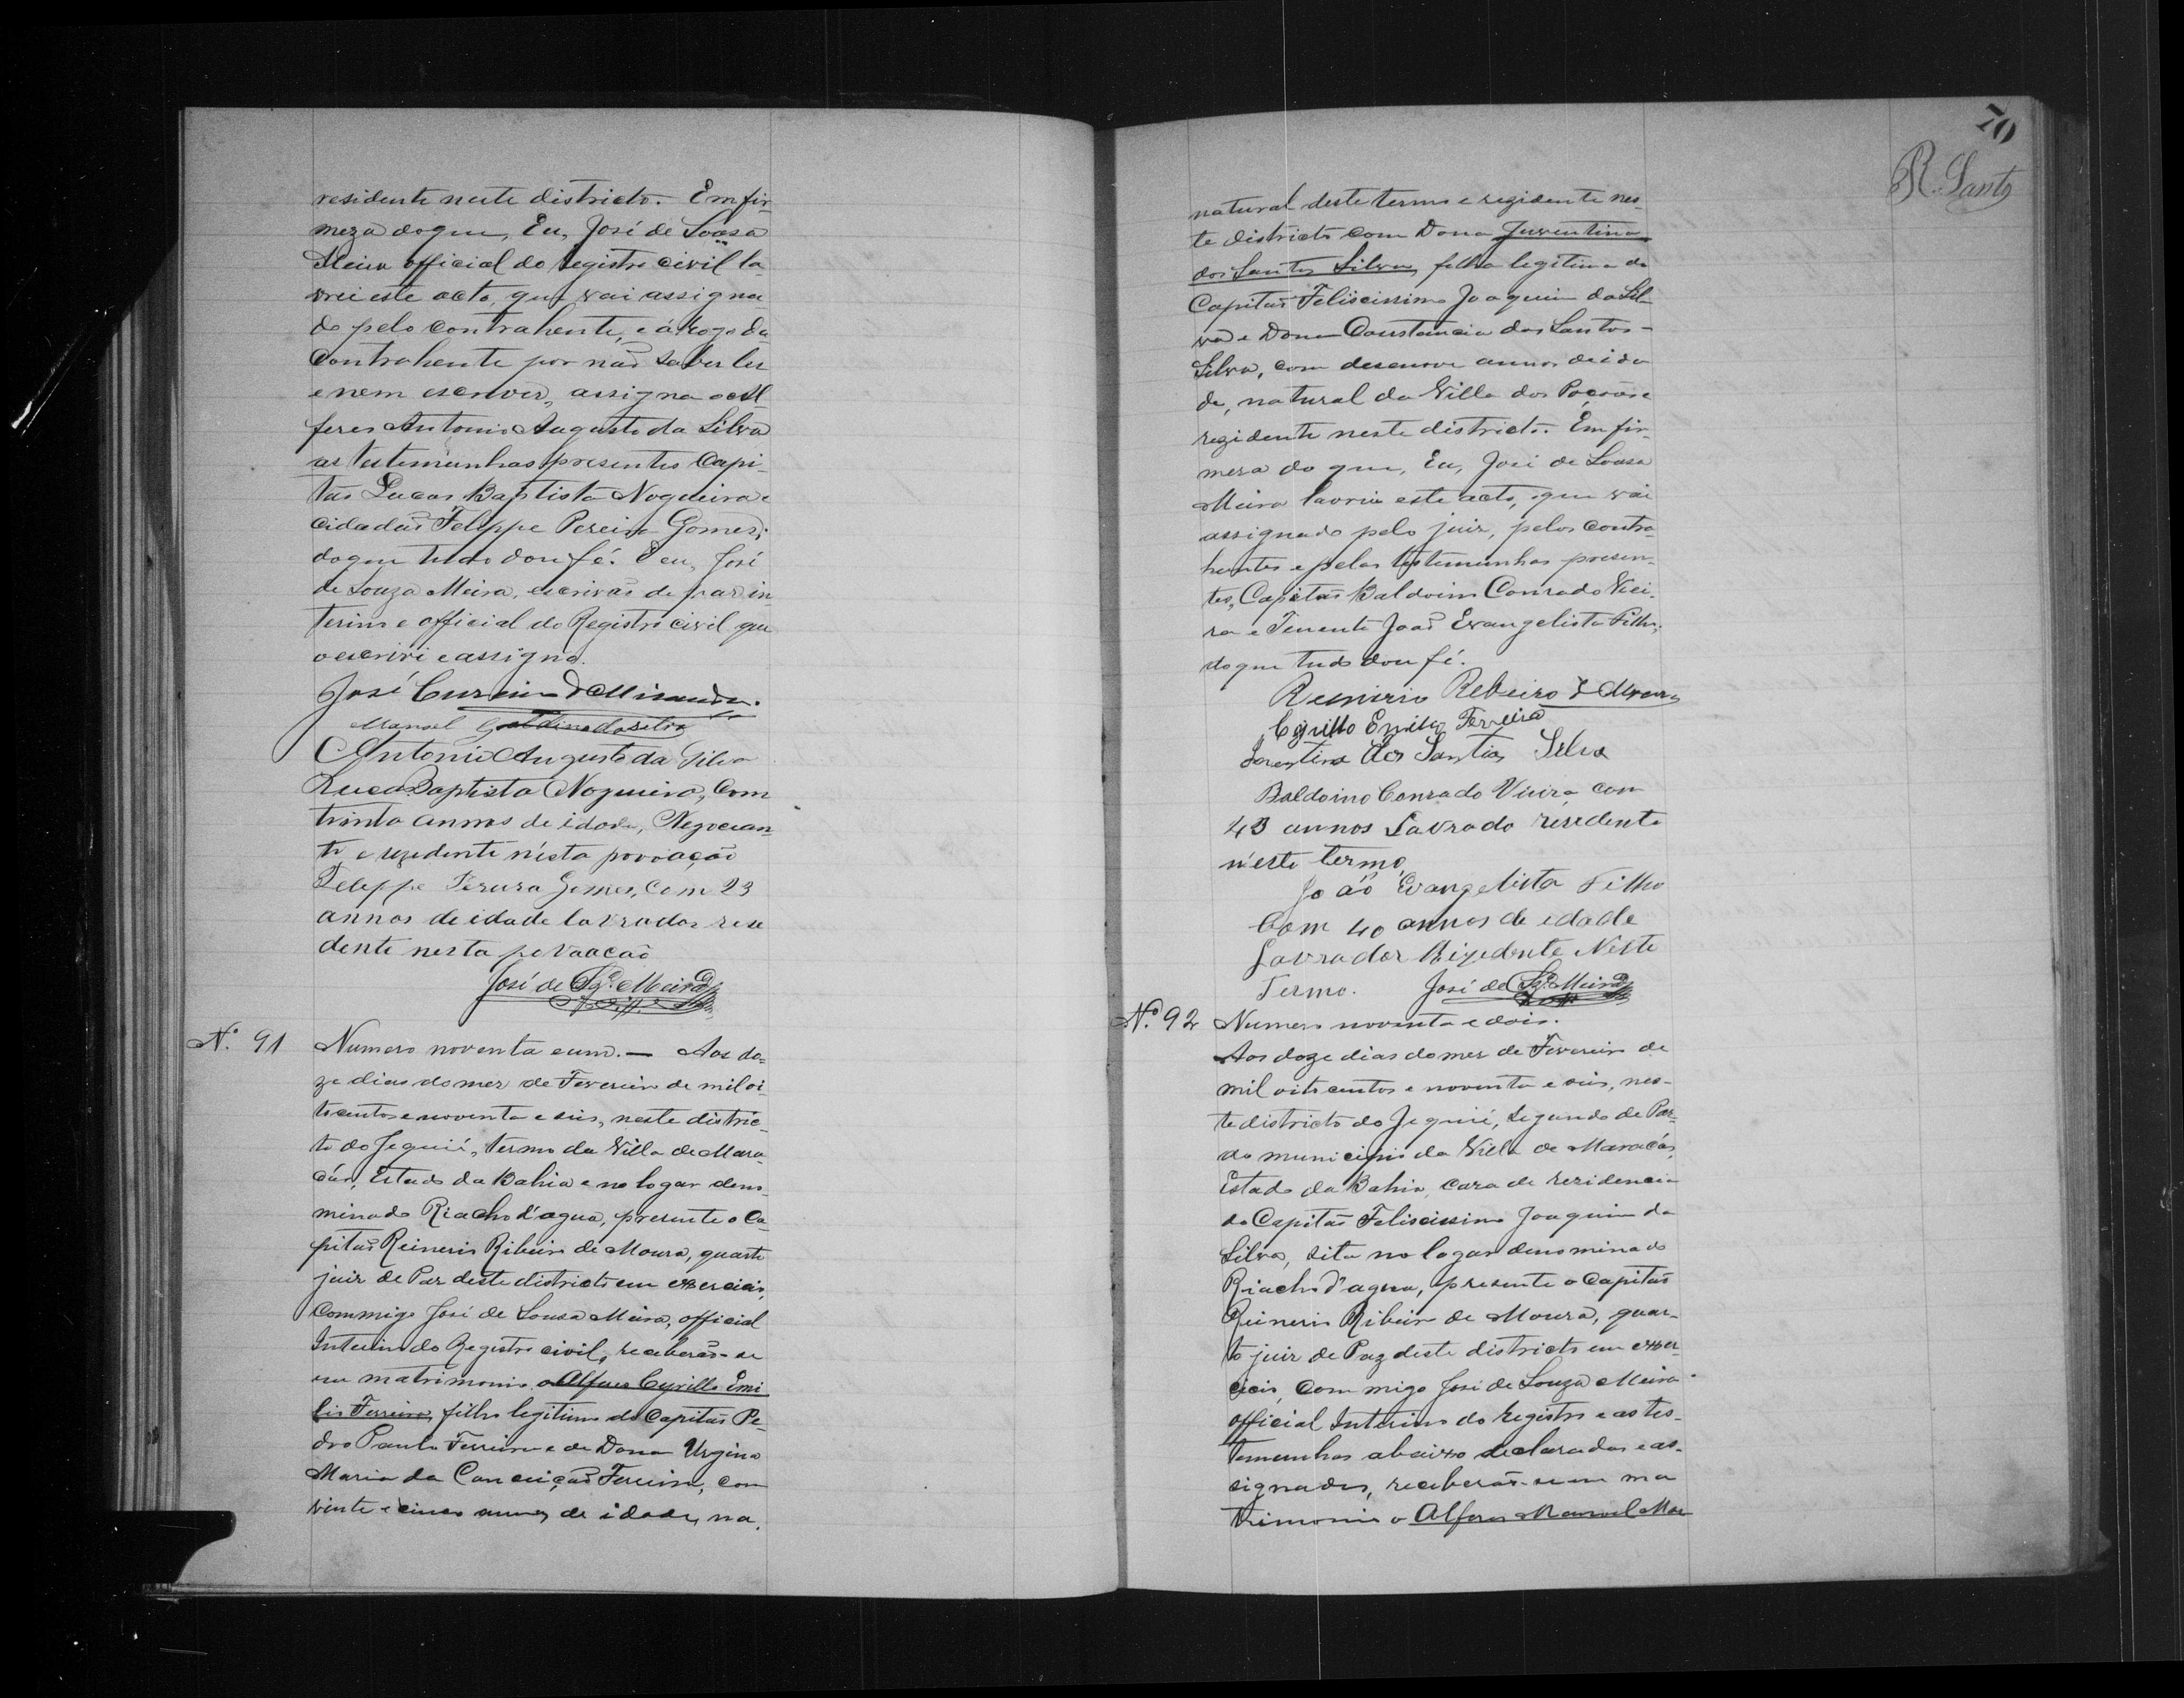 residente neste districto. Em fir-
meza do que, Eu, José de Sousa
Meira official do registro civil la-
vrei este acto, que vai assigna
do pelo contrahente, e á rogo da
Contrahente por não saber ler
e nem escrever, assigna o Al
feres Antonio Augusto da Silva
as testemunhas presentes Capi-
tão Lucas Baptista Nogueira e
cidadão Felippe Pereira Gomes;
do que tudo dou fé. E eu, José
de Souza Meira, escrivão de paz in-
terino e official do Registro civil que
o escrivi e assigno.
José de Miranda.
Manoel Galdino da Silva
Antonio Augusto da Silva
Lucas Baptista Nogueira, Com
trinta annos de idade, Negocian-
te e rezedente n'esta povoação
Felippe Perura Gomes, Com 23
annos de idade lavrador rese
dente nesta povoacão
José de Sz.ª Meira
N.º 91 Numero noventa e um. — Aos do-
ze dias do mez de Fevereiro de mil oi-
tocentos e noventa e seis, neste distric-
to do Jequié, termo da Villa de Mara-
cás, Estado da Bahia e no logar deno-
minado Riacho d'agua, presente o Ca-
pitão Reinerio Ribeiro de Moura, quarto
juiz de Paz deste districto em exercicio,
Commigo José de Sousa Meira, official
Interino do Registro civil, receberão-se
em matrimonio o Alferes Cyrillo Emi
lio Ferreira, filho legitimo do Capitão Pe-
dro Paulo Ferreira e de Dona Urgina
Maria da Conceição Ferreira, com
vinte e cinco annos de idade, na-
70
R. Santos
natural deste termo e rezidente nes-
te districto com Dona Juventina
dos Santos Silva, filha legitima do
Capitão Feliscissimo Joaquim da Sil-
va e Dona Constancia dos Santos -
Silva, com desenove annos de ida
de, natural da Villa dos Poções e
rezidente neste districto. Em fir-
mesa do que, Eu, José de Sousa
Meira lavrei este acto, que vai
assignado pelo juiz, pelos contra-
hentes e pelas testemunhas presen-
tes, Capitão Baldoino Conrado Viei-
ra e Tenente João Evangelista Filho,
do que tudo dou fé.
Reinerio Ribeiro de Moura
Cyrillo Emilio Ferreira
dos Santos Silva
Baldoino Conrado Vieira com
43 annos Lavrado resedente
n'este termo
João Evangelista Filho
Com 40 annos de edade
Lavrador Rizedente Neste
Termo. José de Sz.ª Meira
N.º 92 Numero noventa e dois.
Aos doze dias do mez de Fevereiro de
mil oito centos e noventa e seis, nes-
te districto do Jequié, segundo de Paz
do municipio da Villa de Maracás,
Estado da Bahia, caza de rezidencia
do Capitão Feliscissimo Joaquim da
Silva, sita no logar denominado
Riacho d'agua, presente o Capitão
Reinerio Ribeiro de Moura, quar-
to juiz de Paz deste districto em exer-
cicio, Com migo José de Souza Meira
official Interino do registro e as tes-
temunhas abaixo declaradas e as-
signadas, receberão-se em ma
trimonio o Alferes Manoel Mar